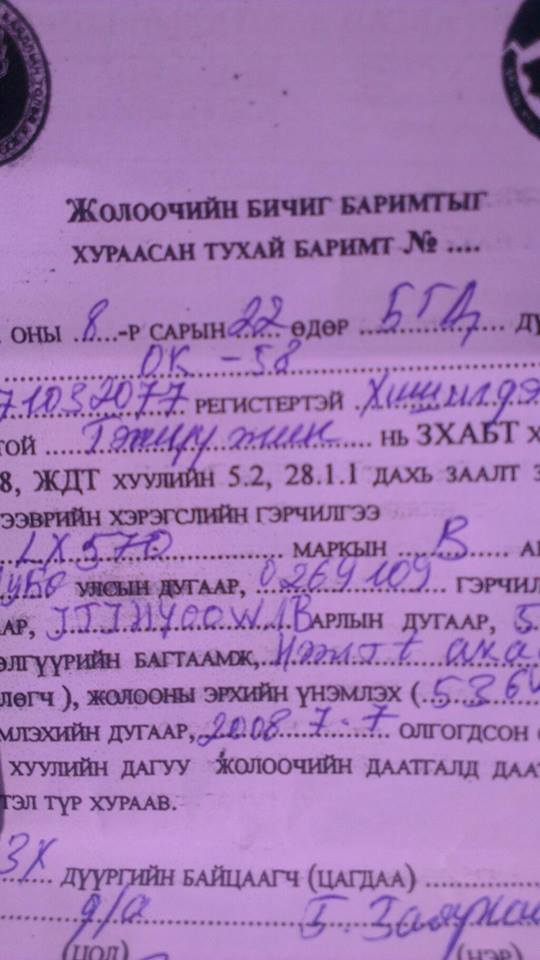 ЖОЛООЧИЙН БИЧИГ БАРИМТЫГ
ХУРААСАН ТУХАЙ БАРИМТ № ....
ОНЫ ..8...-Р САРЫН 22 ӨДӨР ...БГД.... ДҮ
ОК - 58
71032077 РЕГИСТЕРТЭЙ
ТОЙ НЬ ЗХАБТ Х
8, ЖДТ ХУУЛИЙН 5.2, 28.1.1 ДАХЬ ЗААЛТ З
ЭЭВРИЙН ХЭРЭГСЛИЙН ГЭРЧИЛГЭЭ
LX570 МАРКЫН В
УЛСЫН ДУГААР, 0269109 ГЭРЧИЛ
АР, АРЛЫН ДУГААР, 5
ЭЛГҮҮРИЙН БАГТААМЖ,
ЛӨГЧ ), ЖОЛООНЫ ЭРХИЙН ҮНЭМЛЭХ ( 5364
МЛЭХИЙН ДУГААР, 2008 7.7 ОЛГОГДСОН
ХУУЛИЙН ДАГУУ ЖОЛООЧИЙН ДААТГАЛД ДААТ
ТЭЛ ТҮР ХУРААВ.
ЗХ ДҮҮРГИЙН БАЙЦААГЧ (ЦАГДАА)
д/а
(ЦОЛ) (НЭР)